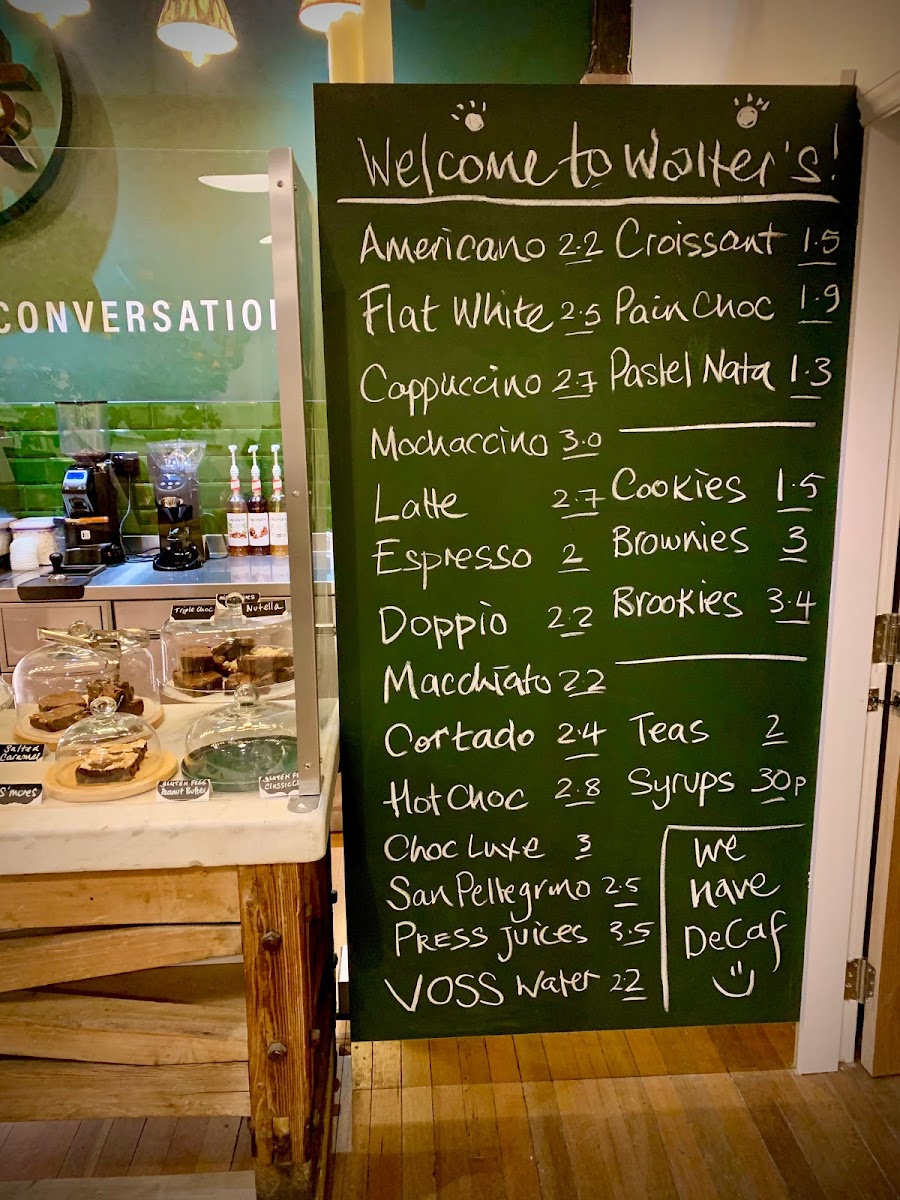 Welcome to Walter's!
Americano 2.2
Flat White 2.5
Cappuccino 2.7
Mochaccino 3.0
Latte 2.7
Espresso 2
Doppio 2.2
Macchiato 2.2
Cortado 2.4
Hot Choc 2.8
Choc Luxe 3
San Pellegrino 2.5
PRESS juices 3.5
VOSS Water 2.2
Croissant 1.5
Pain Choc 1.9
Pastel Nata 1.3
Cookies 1.5
Brownies 3
Brookies 3.4
Teas 2
Syrups 30p
We
have
DeCaf
CONVERSATIO
Triple Choc
Nutella
Salted
Caramel
S'mores
GLUTEN FREE
Peanut Butter
GLUTEN F